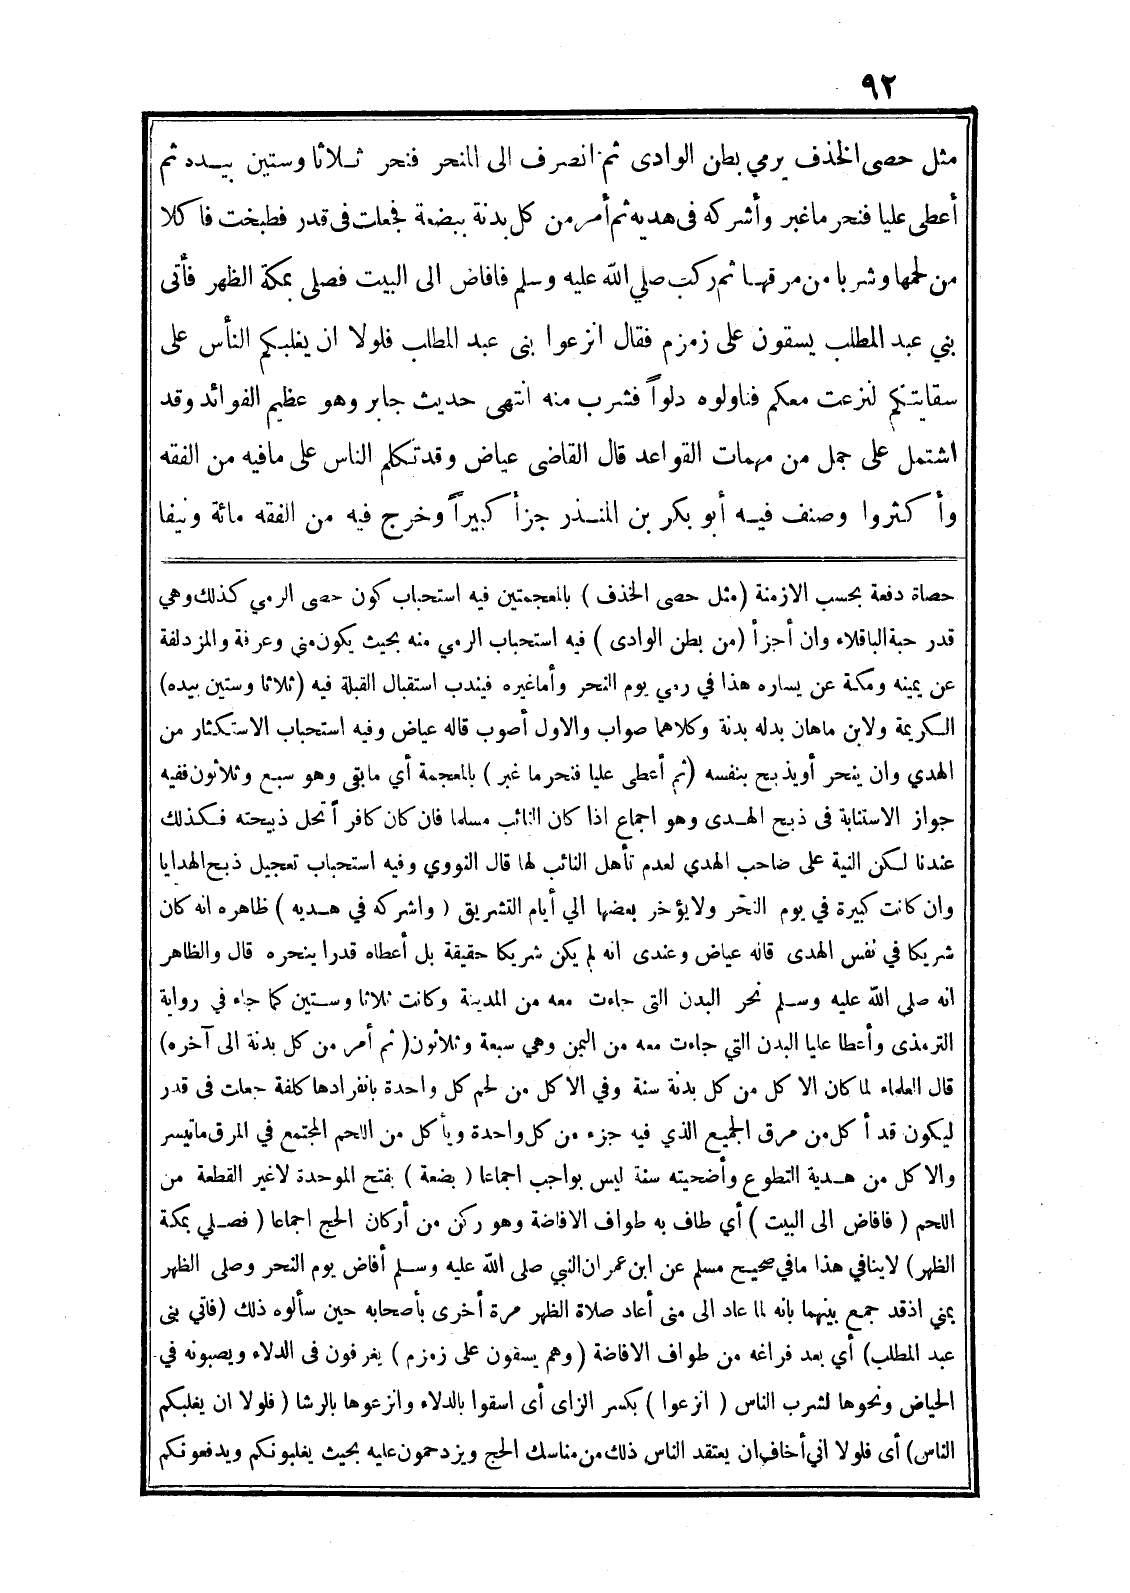 ٩٢
مثل حصى الخذف يرمي بطن الوادى ثم انصرف الى المنحر فنحر ثلاثا وستين بيده ثم
أعطى عليا فنحر ماغبر وأشركه فى هديه ثم أمر من كل بدنة ببضعة فجعلت فى قدر فطبخت فاكلا
من لحمها وشربا من مرقها ثم ركب صلي الله عليه وسلم فافاض الى البيت فصلى بمكة الظهر فأتى
بني عبد المطلب يسقون على زمزم فقال انزعوا بنى عبد المطلب فلولا ان يغلبكم الناس على
سقايتكم لنزعت معكم فناولوه دلواً فشرب منه انتهى حديث جابر وهو عظيم الفوائد وقد
اشتمل على جمل من مهمات القواعد قال القاضى عياض وقد تكلم الناس على مافيه من الفقه
وأكثروا وصنف فيه أبو بكر بن المنذر جزأ كبيراً وخرج فيه من الفقه مائة ونيفا
حصاة دفعة بحسب الازمنة (مثل حصى الخذف) بالمعجمتين فيه استحباب كون حصى الرمي كذلك وهي
قدر حبة الباقلاء وان أجزأ (من بطن الوادى) فيه استحباب الرمي منه بحيث يكون منى وعرفة والمزدلفة
عن يمينه ومكة عن يساره هذا في رمي يوم النحر وأما غيره فيندب استقبال القبلة فيه (ثلاثا وستين بيده)
الكريمة ولابن ماهان بدله بدنة وكلاهما صواب والاول أصوب قاله عياض وفيه استحباب الاستكثار من
الهدي وان ينحر أويذبح بنفسه (ثم أعطى عليا فنحر ما غبر) بالمعجمة أي مابقى وهو سبع وثلاثون ففيه
جواز الاستنابة فى ذبح الهدى وهو اجماع اذا كان النائب مسلما فان كان كافر أ تحل ذبيحته فكذلك
عندنا لكن النية على صاحب الهدي لعدم تأهل النائب لها قال النووي وفيه استحباب تعجيل ذبح الهدايا
وان كانت كبيرة في يوم النحر ولايؤخر بعضها الي أيام التشريق (واشركه في هديه) ظاهره انه كان
شريكا في نفس الهدى قاله عياض وعندى انه لم يكن شريكا حقيقة بل أعطاه قدرا ينحره قال والظاهر
انه صلي الله عليه وسلم نحر البدن التى جاءت معه من المدينة وكانت ثلاثا وستين كما جاء في رواية
الترمذى وأعطا عليا البدن التي جاءت معه من اليمن وهي سبعة وثلاثون (ثم أمر من كل بدنة الى آخره)
قال العلماء لما كان الاكل من كل بدنة سنة وفي الاكل من لحم كل واحدة بانفرادها كلفة جعلت فى قدر
ليكون قد أكل من مرق الجميع الذي فيه جزء من كل واحدة ويأكل من اللحم المجتمع في المرق ماتيسر
والاكل من هدية التطوع وأضحيته سنة ليس بواجب اجماعا (بضعة) بفتح الموحدة لاغير القطعة من
اللحم (فافاض الى البيت) أي طاف به طواف الافاضة وهو ركن من أركان الحج اجماعا (فصلي بمكة
الظهر) لاينافي هذا مافي صحيح مسلم عن ابن عمر ان النبي صلى الله عليه وسلم أفاض يوم النحر وصلى الظهر
بمني اذقد جمع بينهما بانه لما عاد الى منى أعاد صلاة الظهر مرة أخرى بأصحابه حين سألوه ذلك (فاتي بنى
عبد المطلب) أي بعد فراغه من طواف الافاضة (وهم يسقون على زمزم) يغرفون فى الدلاء ويصبونه في
الحياض ونحوها لشرب الناس (انزعوا) بكسر الزاى أى اسقوا بالدلاء وانزعوها بالرشا (فلولا ان يغلبكم
الناس) أى فلولا اني أخاف ان يعتقد الناس ذلك من مناسك الحج ويزدحمون عليه بحيث يغلبونكم ويدفعونكم